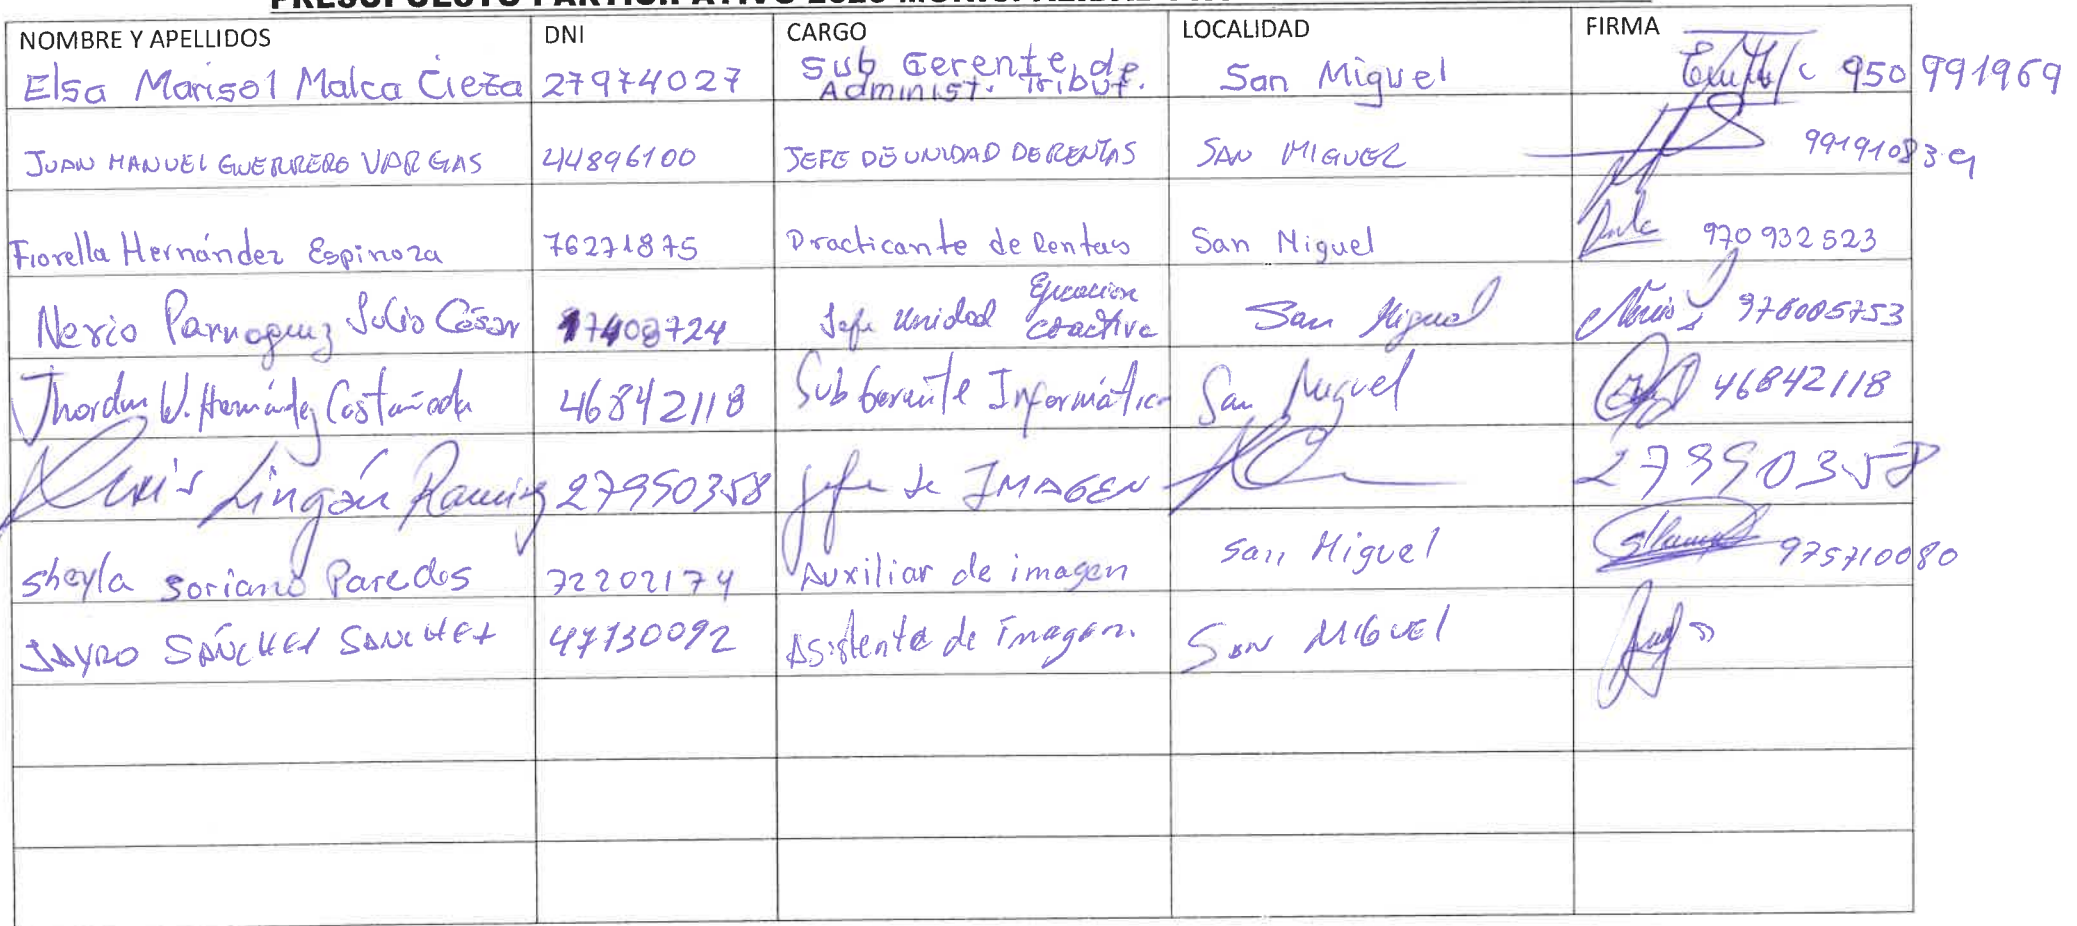 PRESUPUESTO PARTICIPATIVO
NOMBRE Y APELLIDOS DNI CARGO LOCALIDAD FIRMA
Elsa Marisol Malca Cieza 27974027 Sub Gerente de Administ. Tribut. San Miguel 950991969
JUAN MANUEL GUERRERO VARGAS 44896100 JEFE DE UNIDAD DE RENTAS SAN MIGUEL 991910839
Fiorella Hernández Espinoza 76271875 Practicante de Rentas San Miguel 970932523
Nerio Julio César Jefe Unidad Ejecucion coactiva San Miguel 976005753
Jhordan W. Hernández Castañada 46842118 Sub Gerente Informática San Miguel 46842118
Lingán Ramirez 27990358 Jefe de IMAGEN 27990358
Sheyla Soriano Paredes 72202174 Auxiliar de imagen San Miguel 975710080
JAYRO SÁNCHEZ SANCHEZ 47730092 Asistente de Imagen. SAN MIGUEL